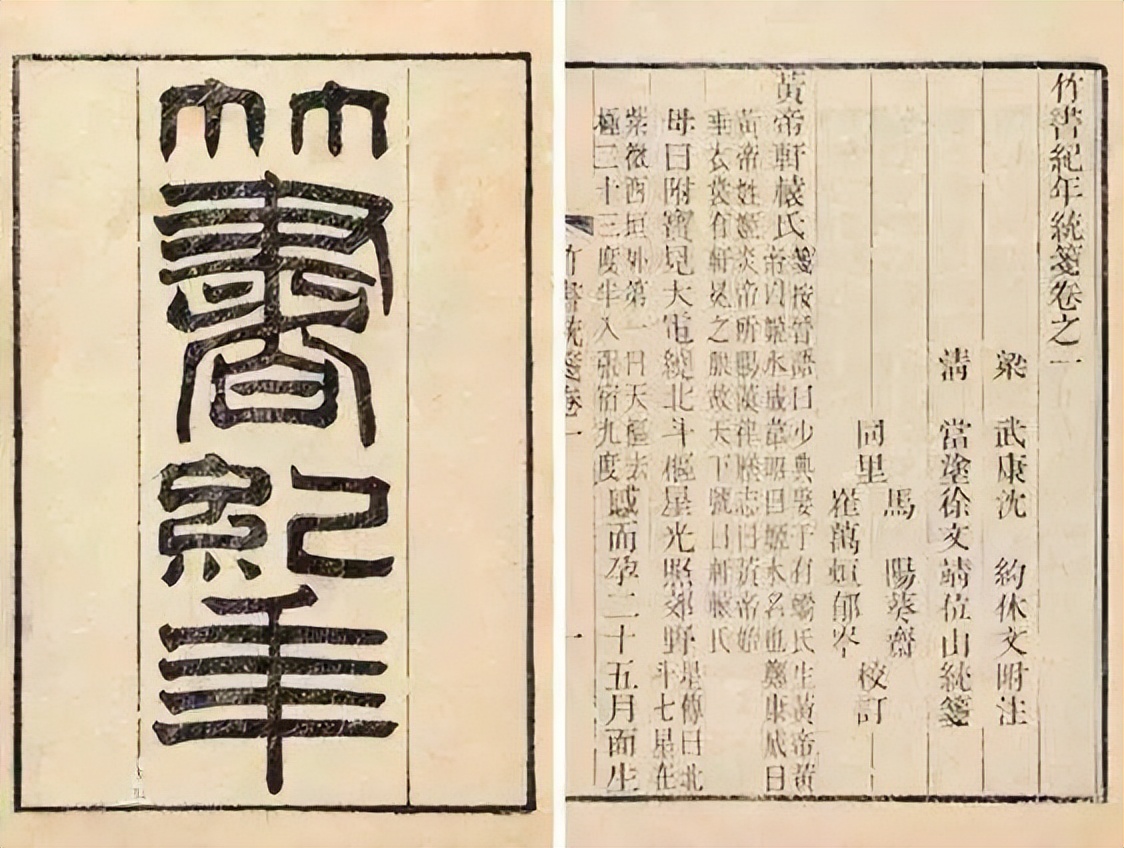 竹書紀年
竹書紀年統箋卷之一
梁 武康沈 約休文附注
清 當塗徐文靖位山統箋
馬 陽葵齋
同里 崔萬烜郁岑 校訂
黃帝軒轅氏 箋按晉語曰少典娶于有蟜氏生黃帝黃
帝以姬水成韋昭曰姬水名也鄭康成曰
黃帝姓姬炎帝所賜漢律曆志曰黃帝始
垂衣裳有軒冕之服故天下號曰軒轅氏
母曰附寶見大電繞北斗樞星光照郊野 星傳曰北
斗七星在
紫微西垣外第一曰天樞去
極二十三度半入張宿九度 感而孕二十五月而生
竹書統箋卷一 一